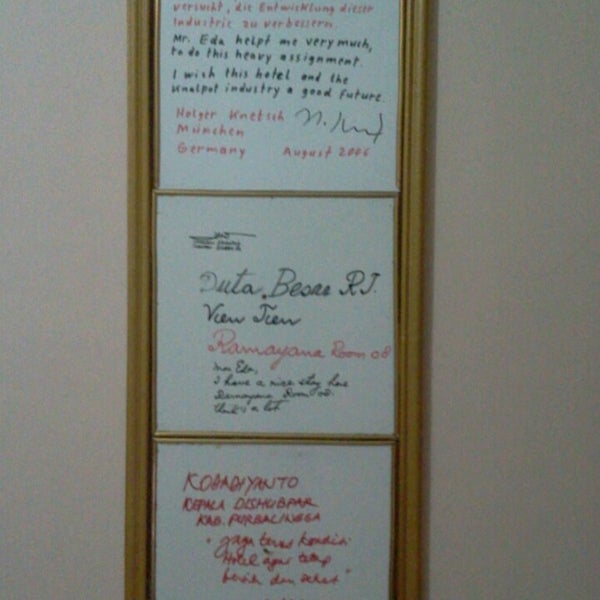 versucht, die Entwicklung dieser
Industrie zu verbessern.
Mr. Eda helpt me very much,
to do this heavy assignment.
I wish this hotel and the
Knalpot industry a good future.
Holger Knetsch
München
Germany August 2006
Duta Besar R.I.
Vien Tien
Ramayana Room 08
Mas Eda,
I have a nice stay here
Ramayana Room 08.
thank's a lot
KEPALA DISHUBPAR
KAB. PURBALINGGA
"jaga terus kondisi
Hotel agar tetap
bersih dan sehat"